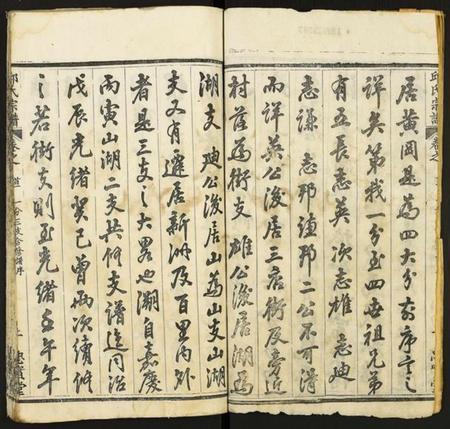 居黃岡是為四大分前序言之
詳矣第我一分至四世祖兄弟
有五長志英 次志雄 志迪
志謙 志邦謙邦二公不可得
而詳英公後居三店街及旁近
村落為街支 雄公後居湖為
湖支 迪公後居山為山支山湖
支又有遷居新洲及百里內外
者是三支之大畧也溯自嘉慶
丙寅山湖二支共修支譜迄同治
戊辰光緒癸巳曾兩次續修
之若街支則至光緒壬午年
邱氏宗譜 卷之
邱氏宗譜 卷之首 一分三支合修譜序